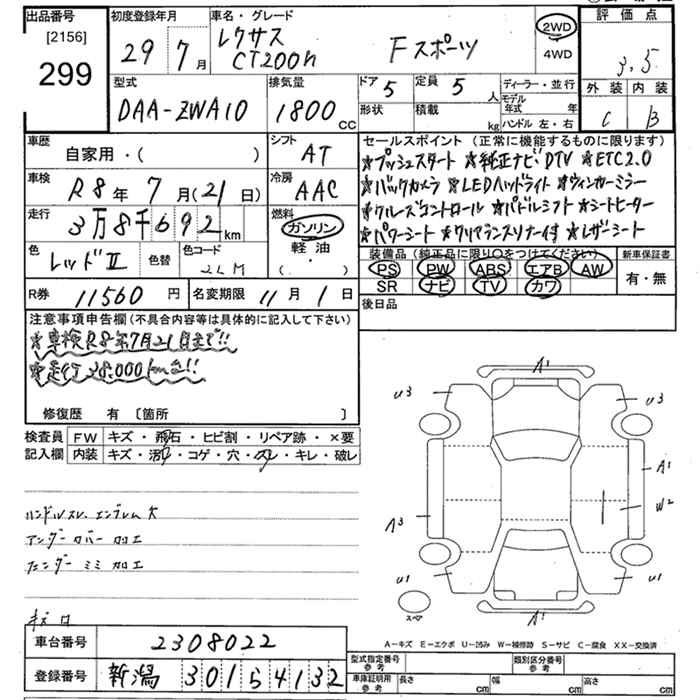 出品番号 初度登録年月 車名・グレード 評価点
[2156] 29年 7月 レクサス CT200h Fスポーツ 2WD 4WD 3.5
299
型式 排気量 ドア 5 定員 5人 ディーラー・並行 外装 内装
DAA-ZWA10 1800cc 形状 積載 kg モデル年式 年 C B
ハンドル 左・右
車歴 自家用・( ) シフト AT
車検 R8年 7月(21)日 冷房 AAC
走行 3万8千692km 燃料 ガソリン 軽油・( . )
色 レッドII 色替 色コード
R券 11560円 名変期限 11月1日
セールスポイント (正常に機能するものに限ります)
★プッシュスタート ★純正ナビDTV ★ETC2.0
★バックカメラ ★LEDヘッドライト ★ウィンカーミラー
★クルーズコントロール ★パドルシフト ★シートヒーター
★パワーシート ★クリアランスソナー付 ★レザーシート
装備品(純正品に限り○をつけてください) 新車保証書
PS PW ABS エアB AW 有・無
SR ナビ TV カワ
後日品
注意事項申告欄(不具合内容等は具体的に記入して下さい)
★車検R8年7月21日まで!!
★走行38.000km台!!
修復歴 有 〔箇所 〕
検査員 FW キズ・飛石・ヒビ割・リペア跡・×要
記入欄 内装 キズ・汚レ・コゲ・穴・スレ・キレ・破レ
ハンドルスレ エンブレム欠
アンダーカバー加工
フェンダーミミ加工
キズ
A1
U3 U3
A1
A3 W2
U1 U1
スペア A1
A-キズ E-エクボ U-凹み W-補修跡 S-サビ C-腐食 XX-交換済
車台番号 2308022
登録番号 新潟 301 5 4132
型式指定番号 参考 類別区分番号 参考
車庫証明用 参考 長さ cm 幅 cm 高さ cm